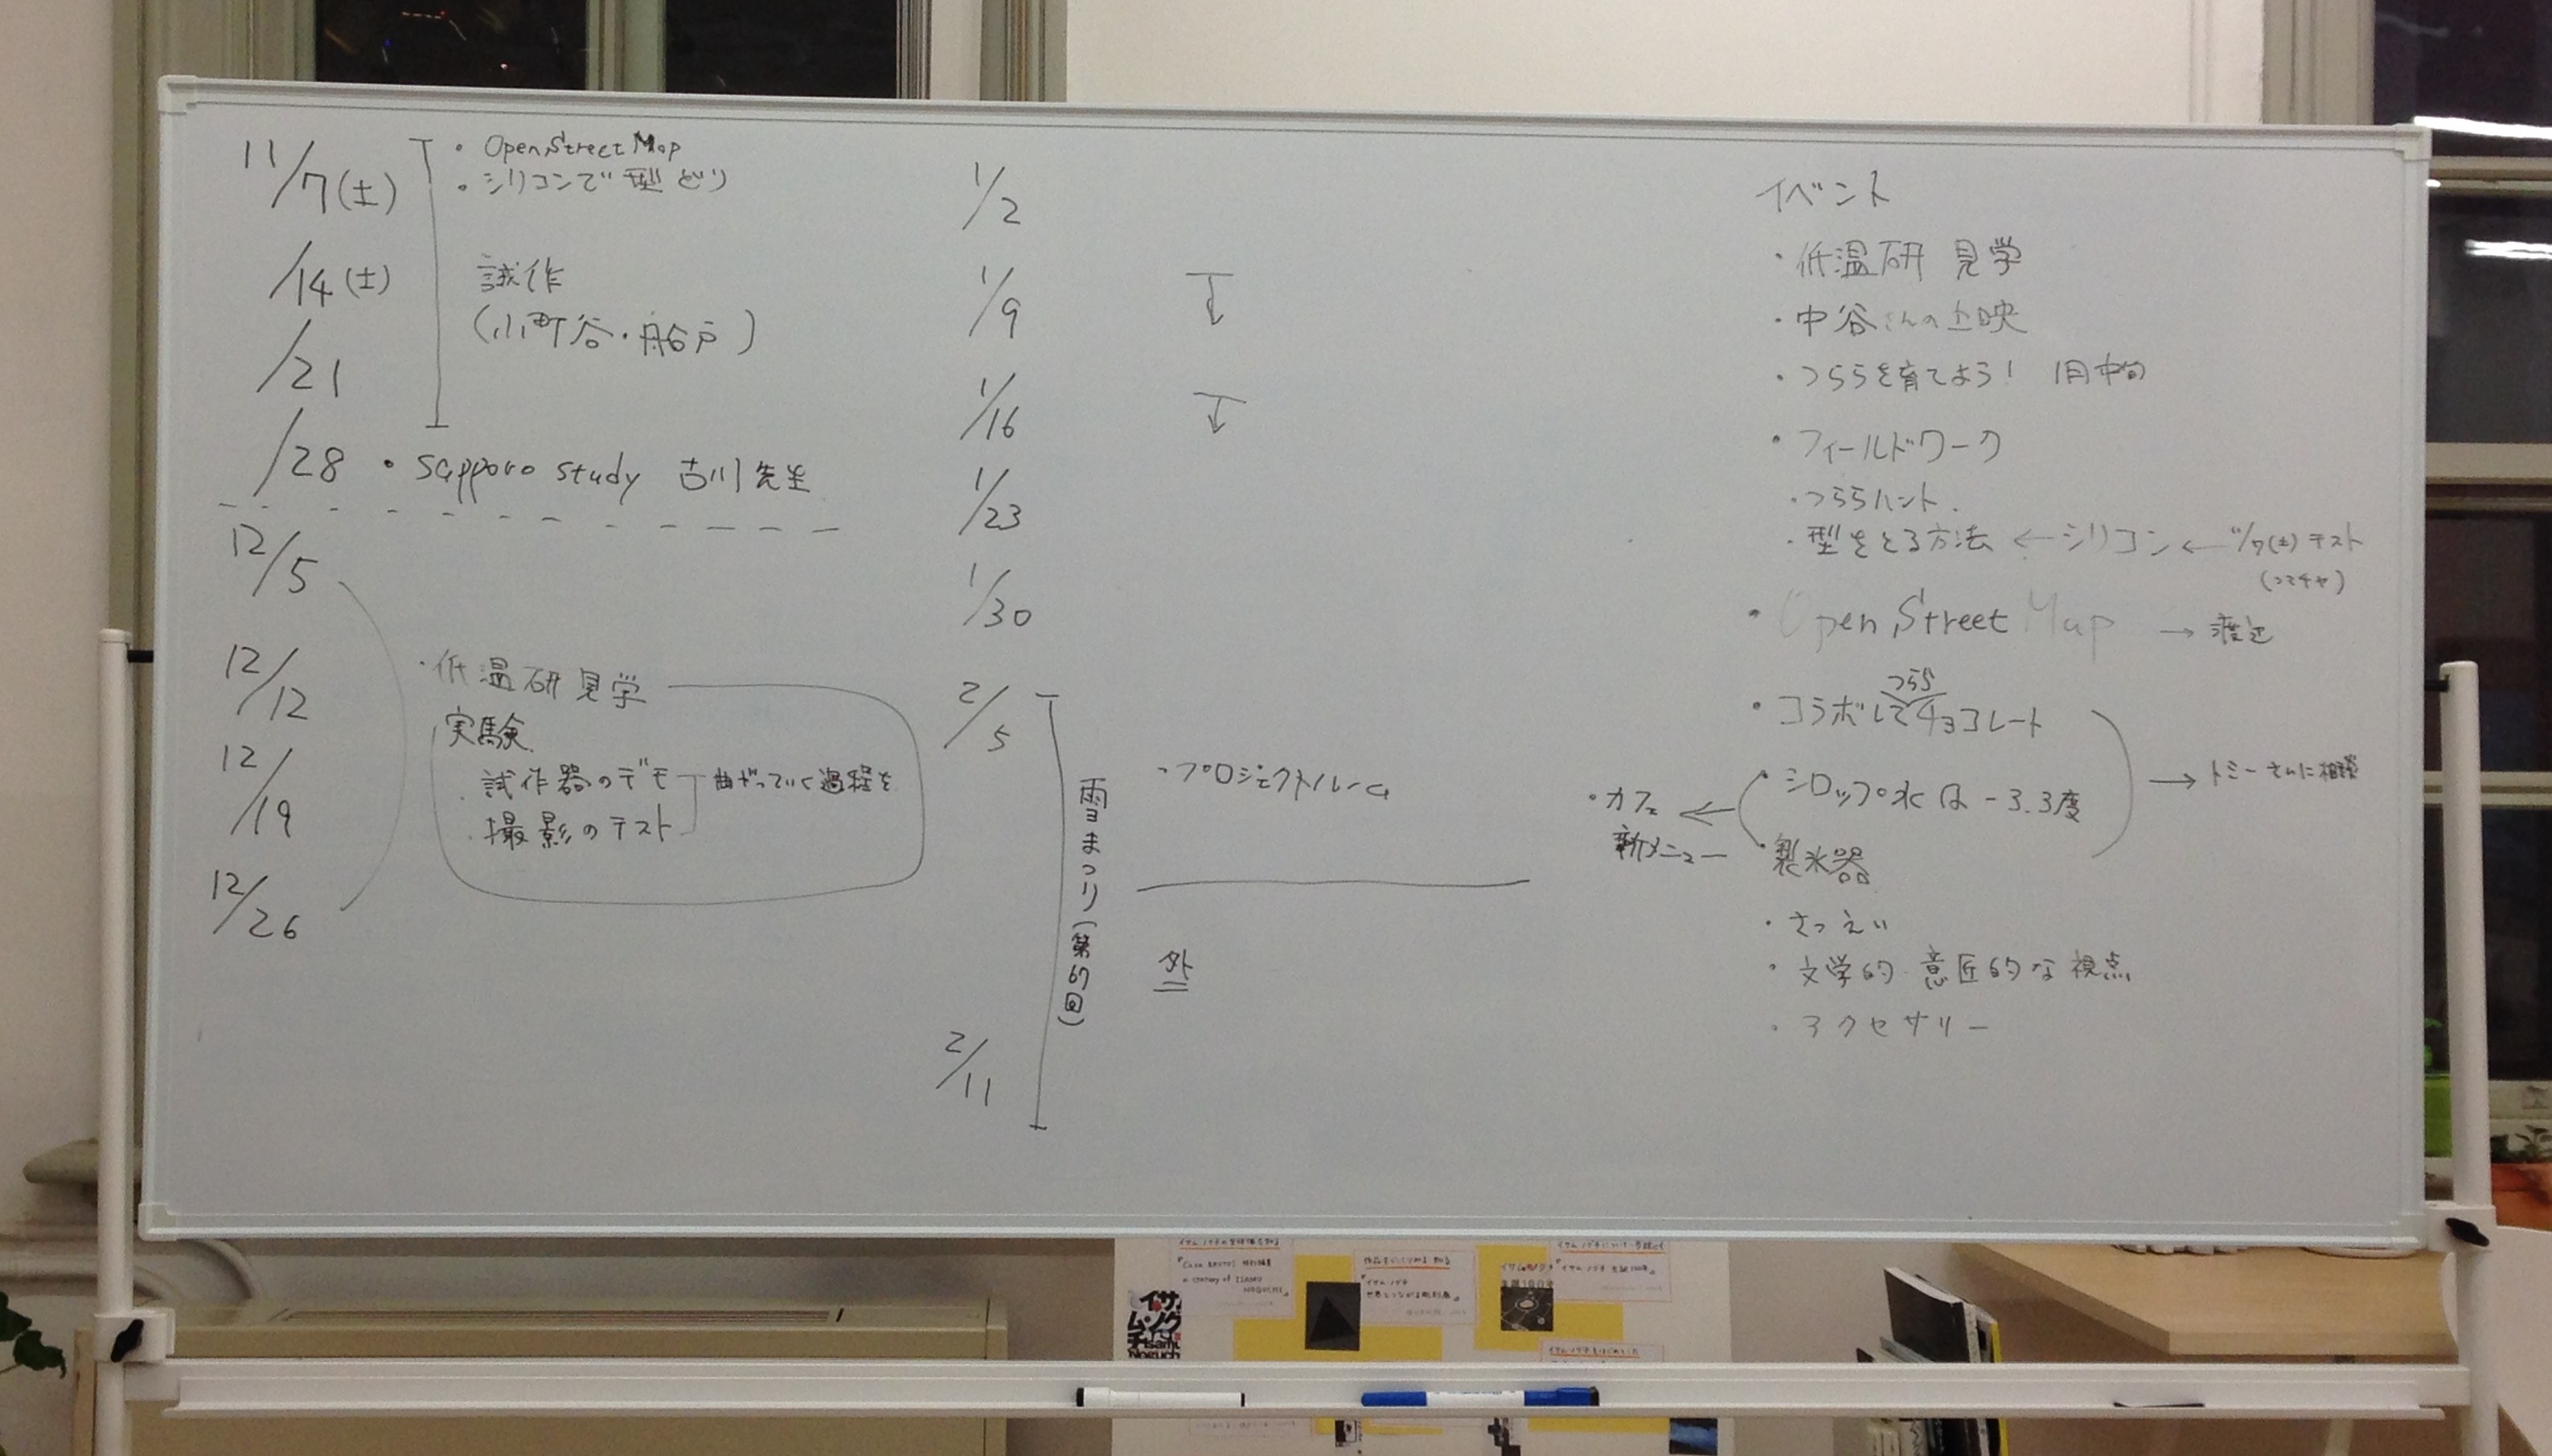 11/7(土)
・OpenStreetMap
・シリコンで型どり
/14(土)
試作
(小町谷・船戸)
/21
/28 ・sapporo study 古川先生
12/5
12/12
・低温研見学
実験
・試作器のデモ
・撮影のテスト
曲がっていく過程を
12/19
12/26
1/2
1/9
1/16
1/23
1/30
2/5
雪まつり(第67回)
・プロジェクトルーム
外
2/11
イベント
・低温研 見学
・中谷さんの上映
・つららを育てよう! 1月中旬
・フィールドワーク
・つららハント.
・型をとる方法 ← シリコン ← 11/7(土)テスト
(コマチヤ)
・OpenStreetMap → 渡辺
つらら
・コラボしてチョコレート
・シロップ氷は -3.3度
→ トミーさんに相談
・製氷器
・カフェ
新メニュー
・さつえい
・文学的 意匠的な視点
・アクセサリー
イサムノグチ
世界とつながる彫刻展』
イサム・ノグチ